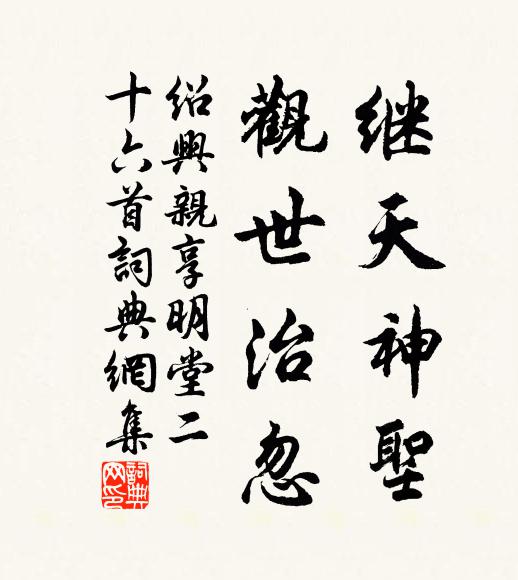 继天神聖
觀世治忽
绍興親享明堂二
十六首詞典網集
詞典网印